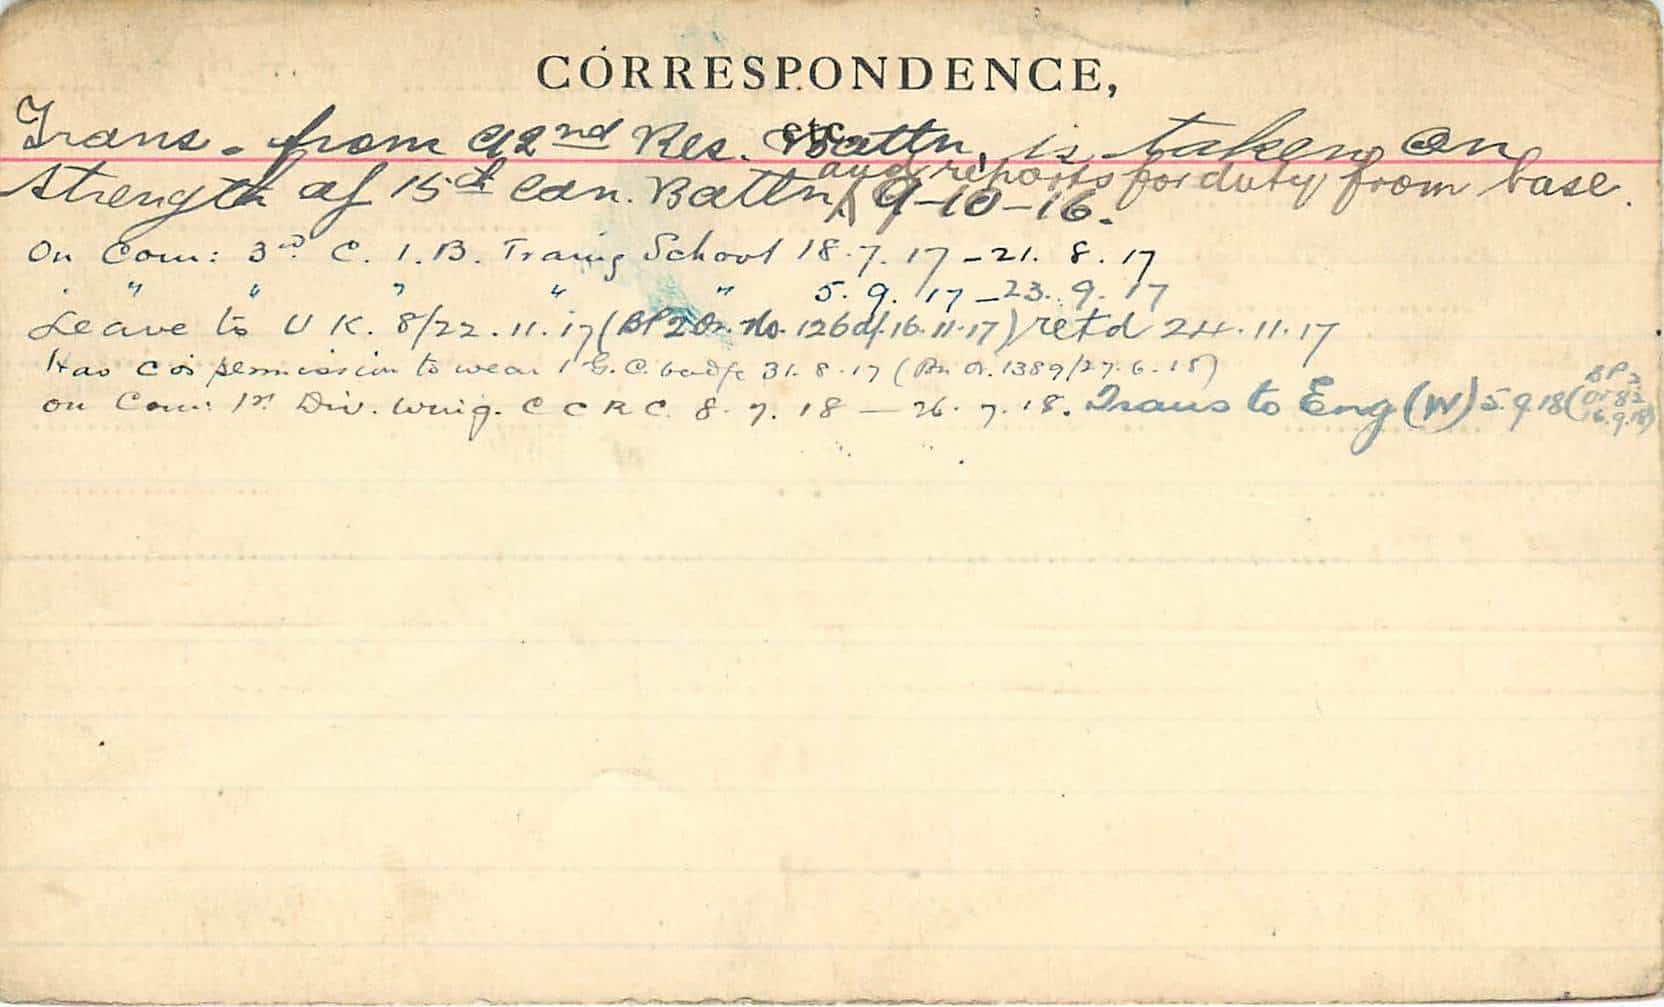 CORRESPONDENCE,
etc.
Trans. from 92nd Res. Battn. is taken on
and reports for duty from base.
strength of 15th Can. Battn 9-10-16.
On Com: 3rd C. I. B. Traing School 18.7.17 – 21.8.17
" " " " " 5.9.17 – 23.9.17
Leave to U K. 8/22.11.17 (BP2 Or. No. 126 d/.16.11.17) retd 24.11.17
Has C o's permission to wear 1 G.C. badge 31.8.17 (Bn Or. 1389/27.6.18)
on Com: 1st Div. Wing. C C R C. 8.7.18 — 26.7.18. Trans to Eng (W) 5.9.18 (BP2
Or 82
16.9.18)